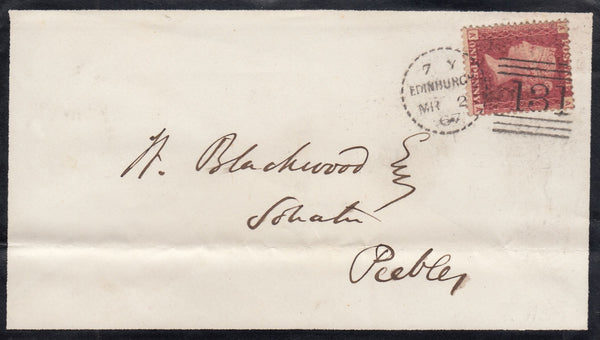 7 Y
EDINBURGH
MR 2
67
131
W. Blackwood Esq
Solicitr
Peebles